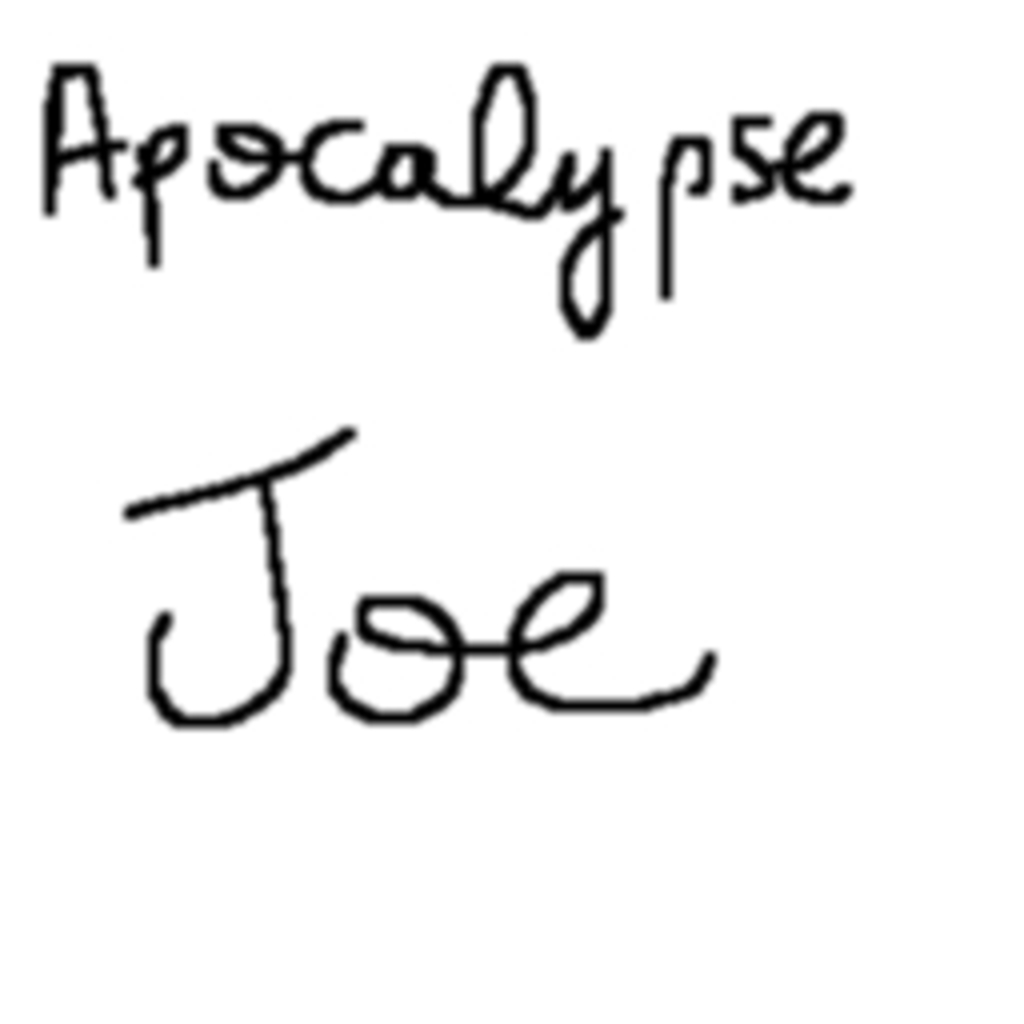 Apocalypse
Joe